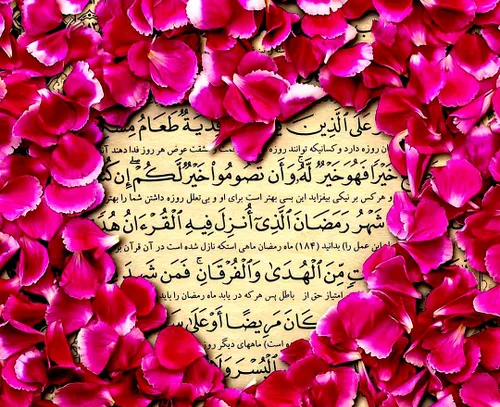 عَلَى الَّذِينَ
فِدْيَةٌ طَعَامُ
روزه دارد وکسانیکه توانند روزه
مشقت عوض هر روز فدا دهند آن
خَيْرًا فَهُوَ خَيْرٌ لَّهُ وَأَن تَصُومُوا خَيْرٌ لَّكُمْ إِن
و هر کس بر نیکی بیفزاید این بسی بهتر است برای او و بی‌تعلل روزه داشتن شما را بهتر
شَهْرُ رَمَضَانَ الَّذِي أُنزِلَ فِيهِ الْقُرْءَانُ
این عمل را) بدانید (۱۸۴) ماه رمضان ماهی استکه نازل شده است در آن قرآن
مِّنَ الْهُدَىٰ وَالْفُرْقَانِ فَمَن
امتیاز حق از باطل پس هر که در یابد ماه رمضان را باید
كَانَ مَرِيضًا أَوْ عَلَىٰ
است) ماههای دیگر روز
الْيُسْرَ